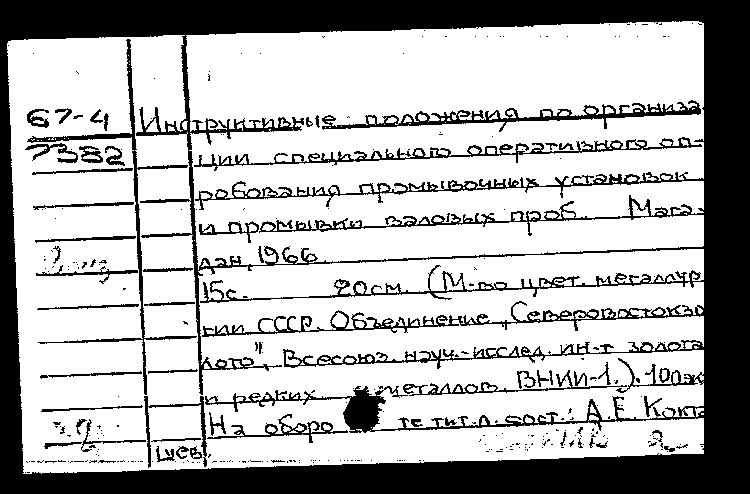 67-4 Инструктивные положения по организа-
7382 ции специального оперативного оп-
робования промывочных установок
и промывки валовых проб. Мага-
дан, 1966.
15с. 20см. (М-во цвет. металлур
гии СССР. Объединение „Северовостокзо
лото", Всесоюз. науч.-исслед. ин-т золота
и редких металлов. ВНИИ-1.). 100эк
На оборо те тит.л. сост.: А.Е. Кокта